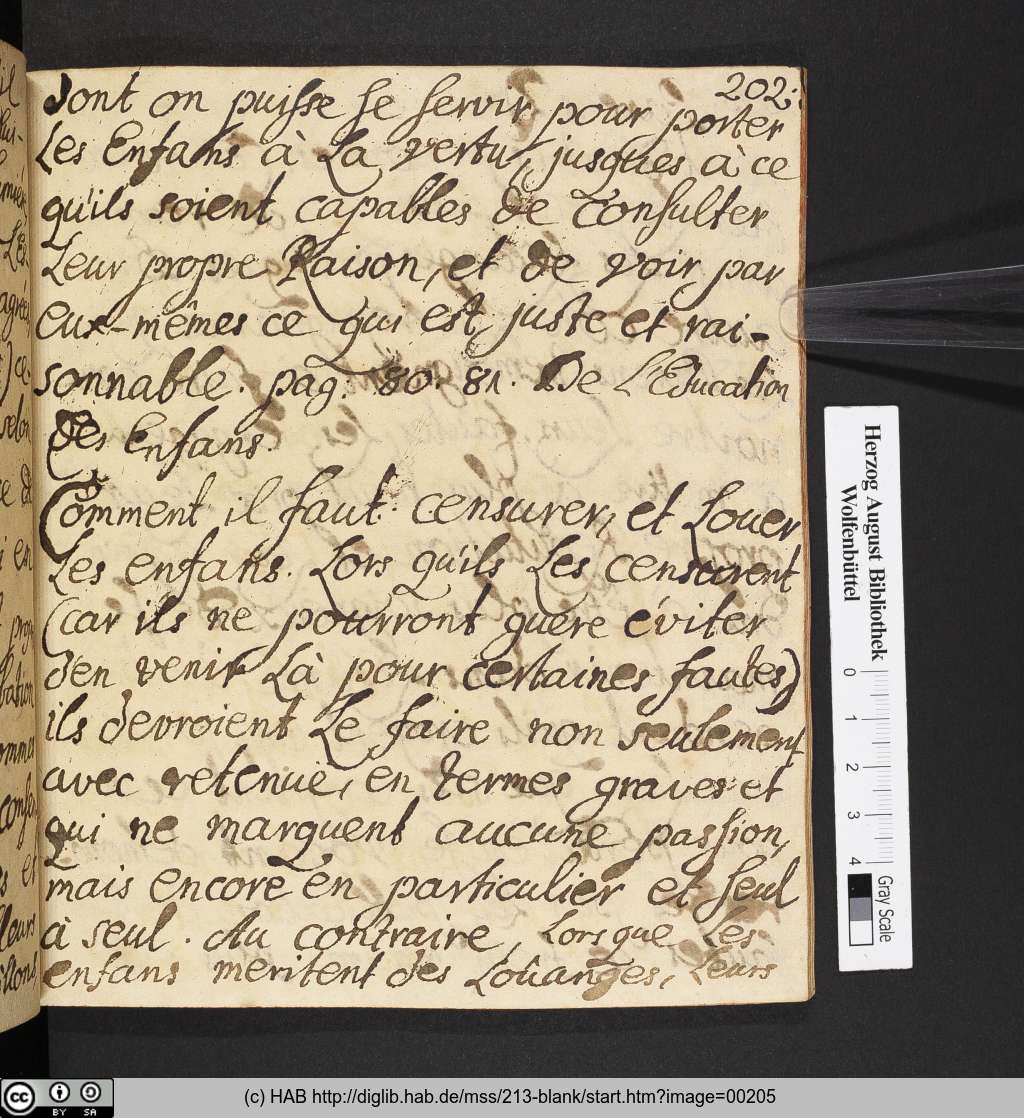 202.
dont on puisse se servir pour porter
les Enfans à la vertu, jusques à ce
qu'ils soient capables de Consulter
leur propre Raison, et de voir par
eux-mêmes ce qui est juste et rai-
sonnable. pag. 80. 81. De L'Education
des Enfans.
Comment il faut censurer, et Louer
les enfans. Lors qu'ils les censurent
(car ils ne pourront guere éviter
d'en venir là pour certaines fautes)
ils devroient le faire non seulement
avec retenuë, en termes graves et
qui ne marquent aucune passion,
mais encore en particulier et seul
à seul. Au contraire, lorsque les
enfans meritent des Loüanges, leurs
Herzog August Bibliothek
Wolfenbüttel
0 1 2 3 4
Gray Scale
cc BY SA
(c) HAB http://diglib.hab.de/mss/213-blank/start.htm?image=00205